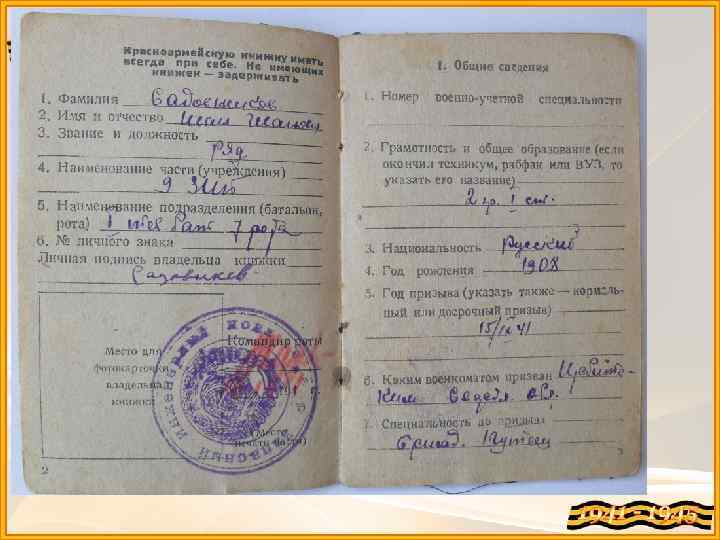 Красноармейскую книжку иметь
всегда при себе. Не имеющих
книжек — задерживать
1. Фамилия Садовников
2. Имя и отчество Иван
3. Звание и должность
ряд
4. Наименование части (учреждения)
9
5. Наименование подразделения (батальон,
рота) 1 7 рота
6. № личного знака
Личная подпись владельца книжки
Место для
фотокарточки
владельца
книжки
Командир роты
(Место
печати части)
2
I. Общие сведения
1. Номер военно-учетной специальности
2. Грамотность и общее образование (если
окончил техникум, рабфак или ВУЗ, то
указать его название)
2 гр. I ст.
3. Национальность Русский
4. Год рождения 1908
5. Год призыва (указать также — нормаль-
ный или досрочный призыв)
15/IX 41
6. Каким военкоматом призван
ким
7. Специальность до призыва
Бригад.
3
1941-1945